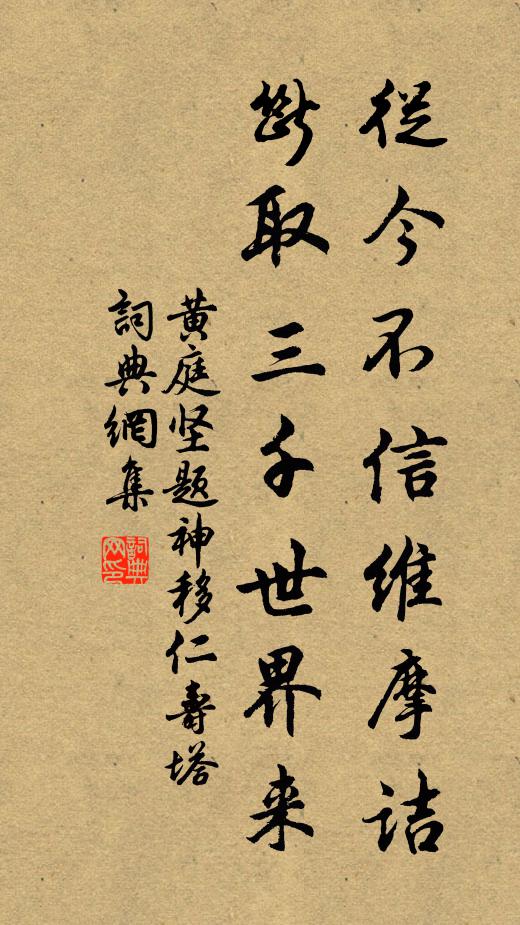 從今不信維摩詰
斷取三千世界来
黄庭坚题神移仁壽塔
詞典網集
詞典网印